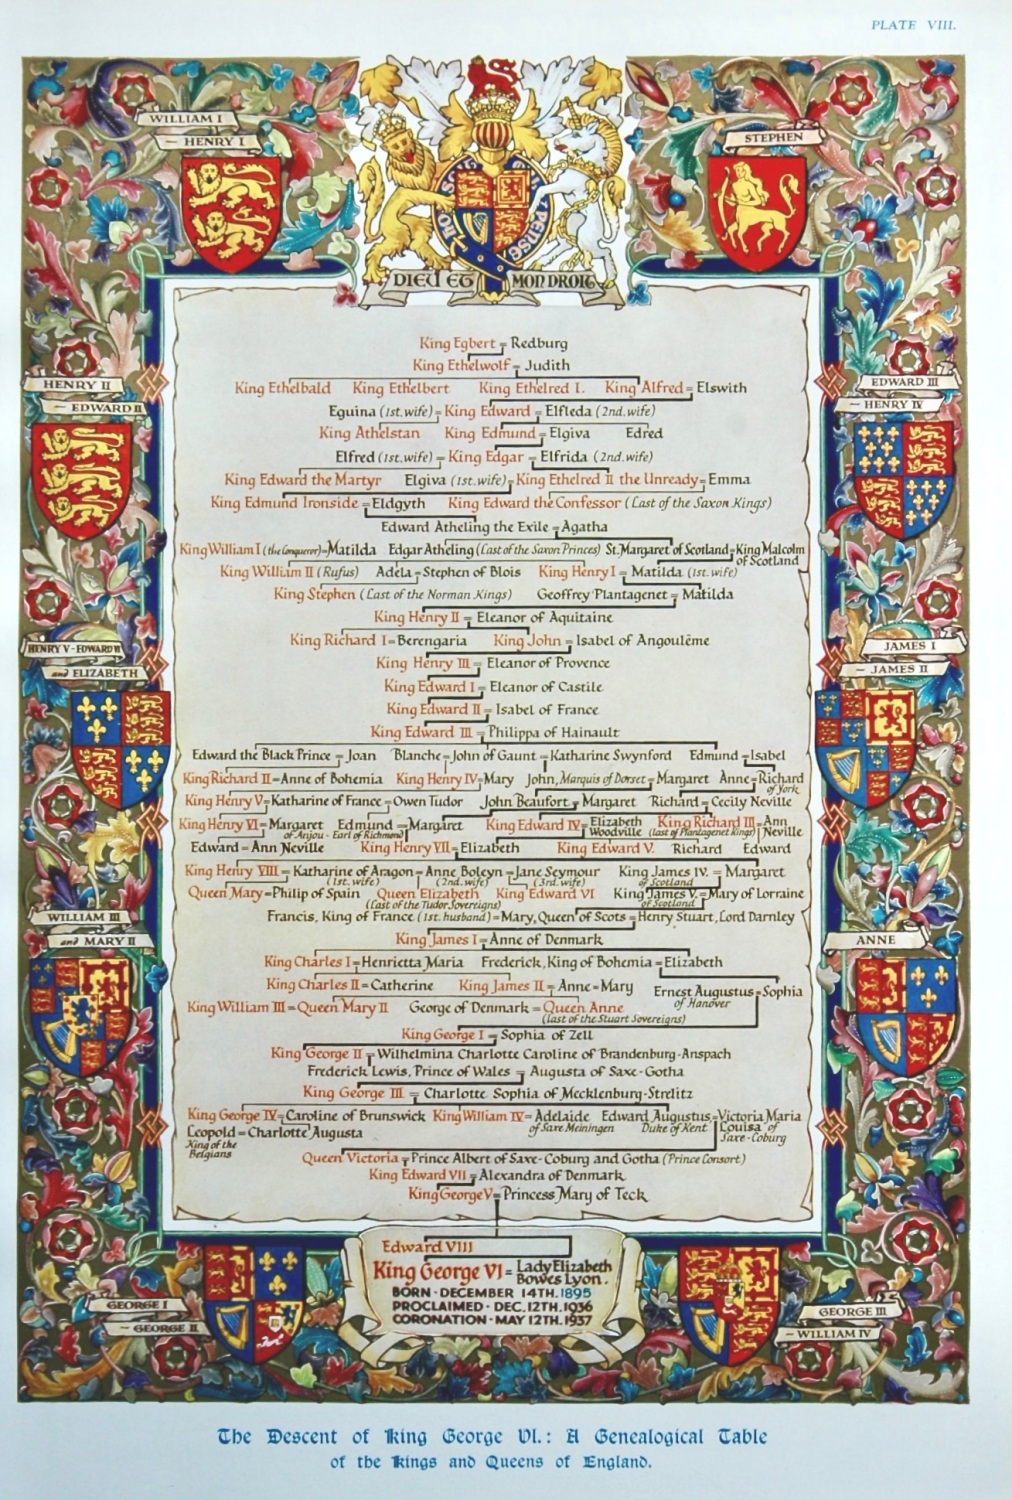 PLATE VIII.
WILLIAM I
– HENRY I
STEPHEN
DIEU ET MON DROIT
King Egbert = Redburg
King Ethelwolf = Judith
King Ethelbald King Ethelbert King Ethelred I. King Alfred = Elswith
HENRY II
– EDWARD II
EDWARD III
– HENRY IV
Eguina (1st. wife) = King Edward = Elfleda (2nd. wife)
King Athelstan King Edmund = Elgiva Edred
Elfred (1st. wife) = King Edgar = Elfrida (2nd. wife)
King Edward the Martyr Elgiva (1st. wife) = King Ethelred II the Unready = Emma
King Edmund Ironside = Eldgyth King Edward the Confessor (Last of the Saxon Kings)
Edward Atheling the Exile = Agatha
King William I (the Conqueror) = Matilda Edgar Atheling (Last of the Saxon Princes) St. Margaret of Scotland = King Malcolm of Scotland
King William II (Rufus) Adela = Stephen of Blois King Henry I = Matilda (1st. wife)
King Stephen (Last of the Norman Kings) Geoffrey Plantagenet = Matilda
King Henry II = Eleanor of Aquitaine
King Richard I = Berengaria King John = Isabel of Angoulême
HENRY V - EDWARD VI
and ELIZABETH
JAMES I
– JAMES II
King Henry III = Eleanor of Provence
King Edward I = Eleanor of Castile
King Edward II = Isabel of France
King Edward III = Philippa of Hainault
Edward the Black Prince = Joan Blanche = John of Gaunt = Katharine Swynford Edmund = Isabel
King Richard II = Anne of Bohemia King Henry IV = Mary John, Marquis of Dorset = Margaret Anne = Richard of York
King Henry V = Katharine of France = Owen Tudor John Beaufort = Margaret Richard = Cecily Neville
King Henry VI = Margaret of Anjou Edmund Earl of Richmond = Margaret King Edward IV = Elizabeth Woodville King Richard III (last of Plantagenet Kings) = Ann Neville
Edward = Ann Neville King Henry VII = Elizabeth King Edward V. Richard Edward
King Henry VIII = Katharine of Aragon (1st. wife) = Anne Boleyn (2nd. wife) = Jane Seymour (3rd. wife) King James IV. of Scotland = Margaret
Queen Mary = Philip of Spain Queen Elizabeth (Last of the Tudor Sovereigns) King Edward VI King James V. of Scotland = Mary of Lorraine
Francis, King of France (1st. husband) = Mary, Queen of Scots = Henry Stuart, Lord Darnley
WILLIAM III
and MARY II
ANNE
King James I = Anne of Denmark
King Charles I = Henrietta Maria Frederick, King of Bohemia = Elizabeth
King Charles II = Catherine King James II = Anne = Mary Ernest Augustus of Hanover = Sophia
King William III = Queen Mary II George of Denmark = Queen Anne (last of the Stuart Sovereigns)
King George I = Sophia of Zell
King George II = Wilhelmina Charlotte Caroline of Brandenburg-Anspach
Frederick Lewis, Prince of Wales = Augusta of Saxe-Gotha
King George III = Charlotte Sophia of Mecklenburg-Strelitz
King George IV = Caroline of Brunswick King William IV = Adelaide of Saxe Meiningen Edward Augustus Duke of Kent = Victoria Maria Louisa of Saxe-Coburg
Leopold King of the Belgians = Charlotte Augusta
Queen Victoria = Prince Albert of Saxe-Coburg and Gotha (Prince Consort)
King Edward VII = Alexandra of Denmark
King George V = Princess Mary of Teck
Edward VIII
King George VI = Lady Elizabeth Bowes Lyon.
BORN · DECEMBER 14TH. 1895
PROCLAIMED · DEC. 12TH. 1936
CORONATION · MAY 12TH. 1937
GEORGE I
– GEORGE II
GEORGE III
– WILLIAM IV
The Descent of King George VI.: A Genealogical Table
of the Kings and Queens of England.